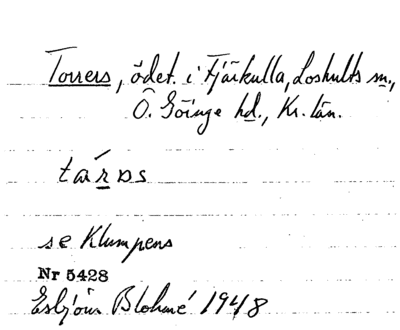 Torrers, ödet. i Fjärkulla, Loshults sn.,
Ö. Göinge hd., Kr. län.
se Klumpens
Nr 5428
Esbjörn Blohmé 1948